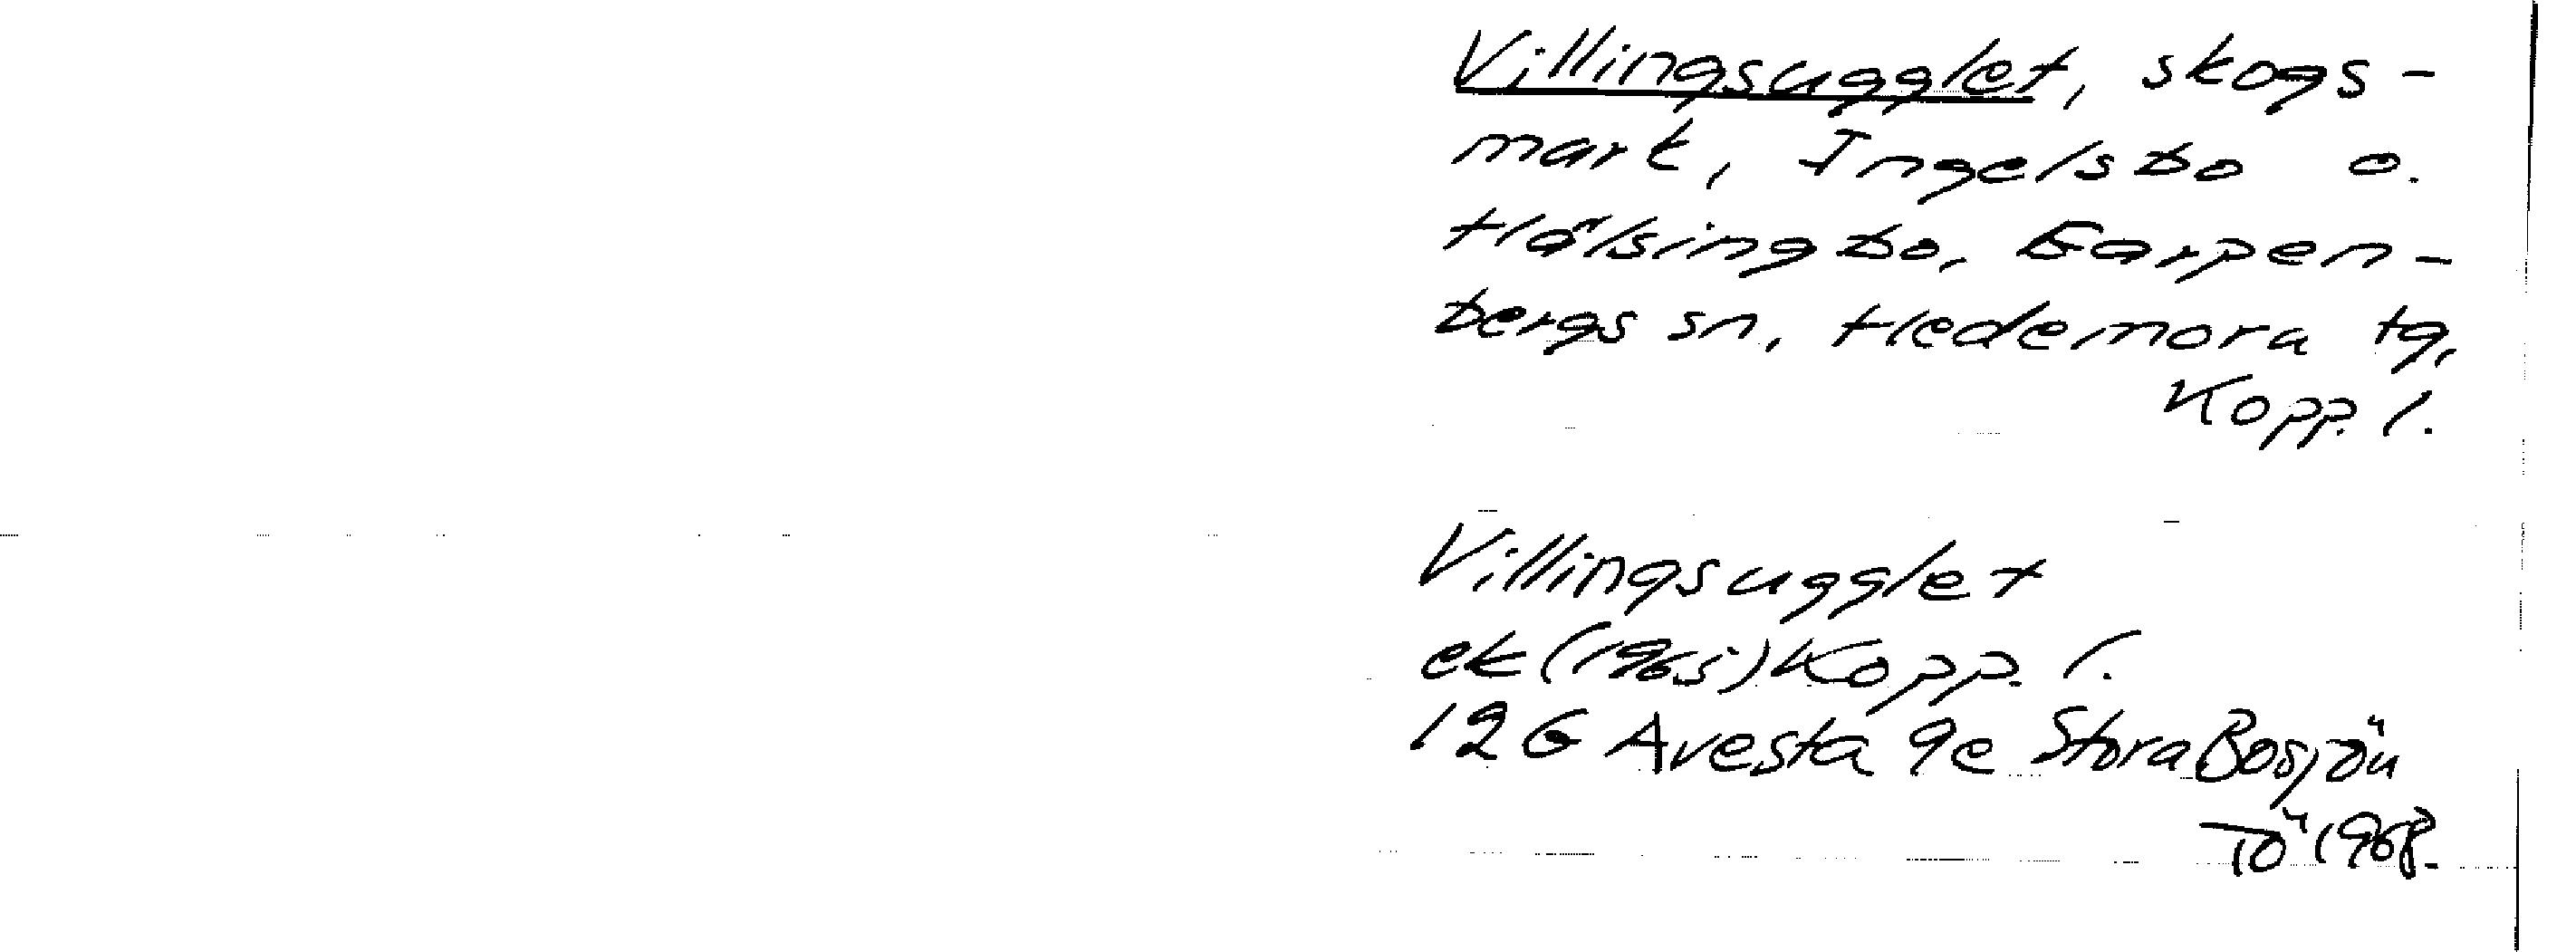 Villingsugglet, skogs-
mark, Ingelsbo o.
Hälsingbo, Garpen-
bergs sn, Hedemora tg,
Kopp. l.
Villingsugglet
ek (1965) Kopp. l.
12G Avesta 9e Stora Bosjön
TÖ 1968.